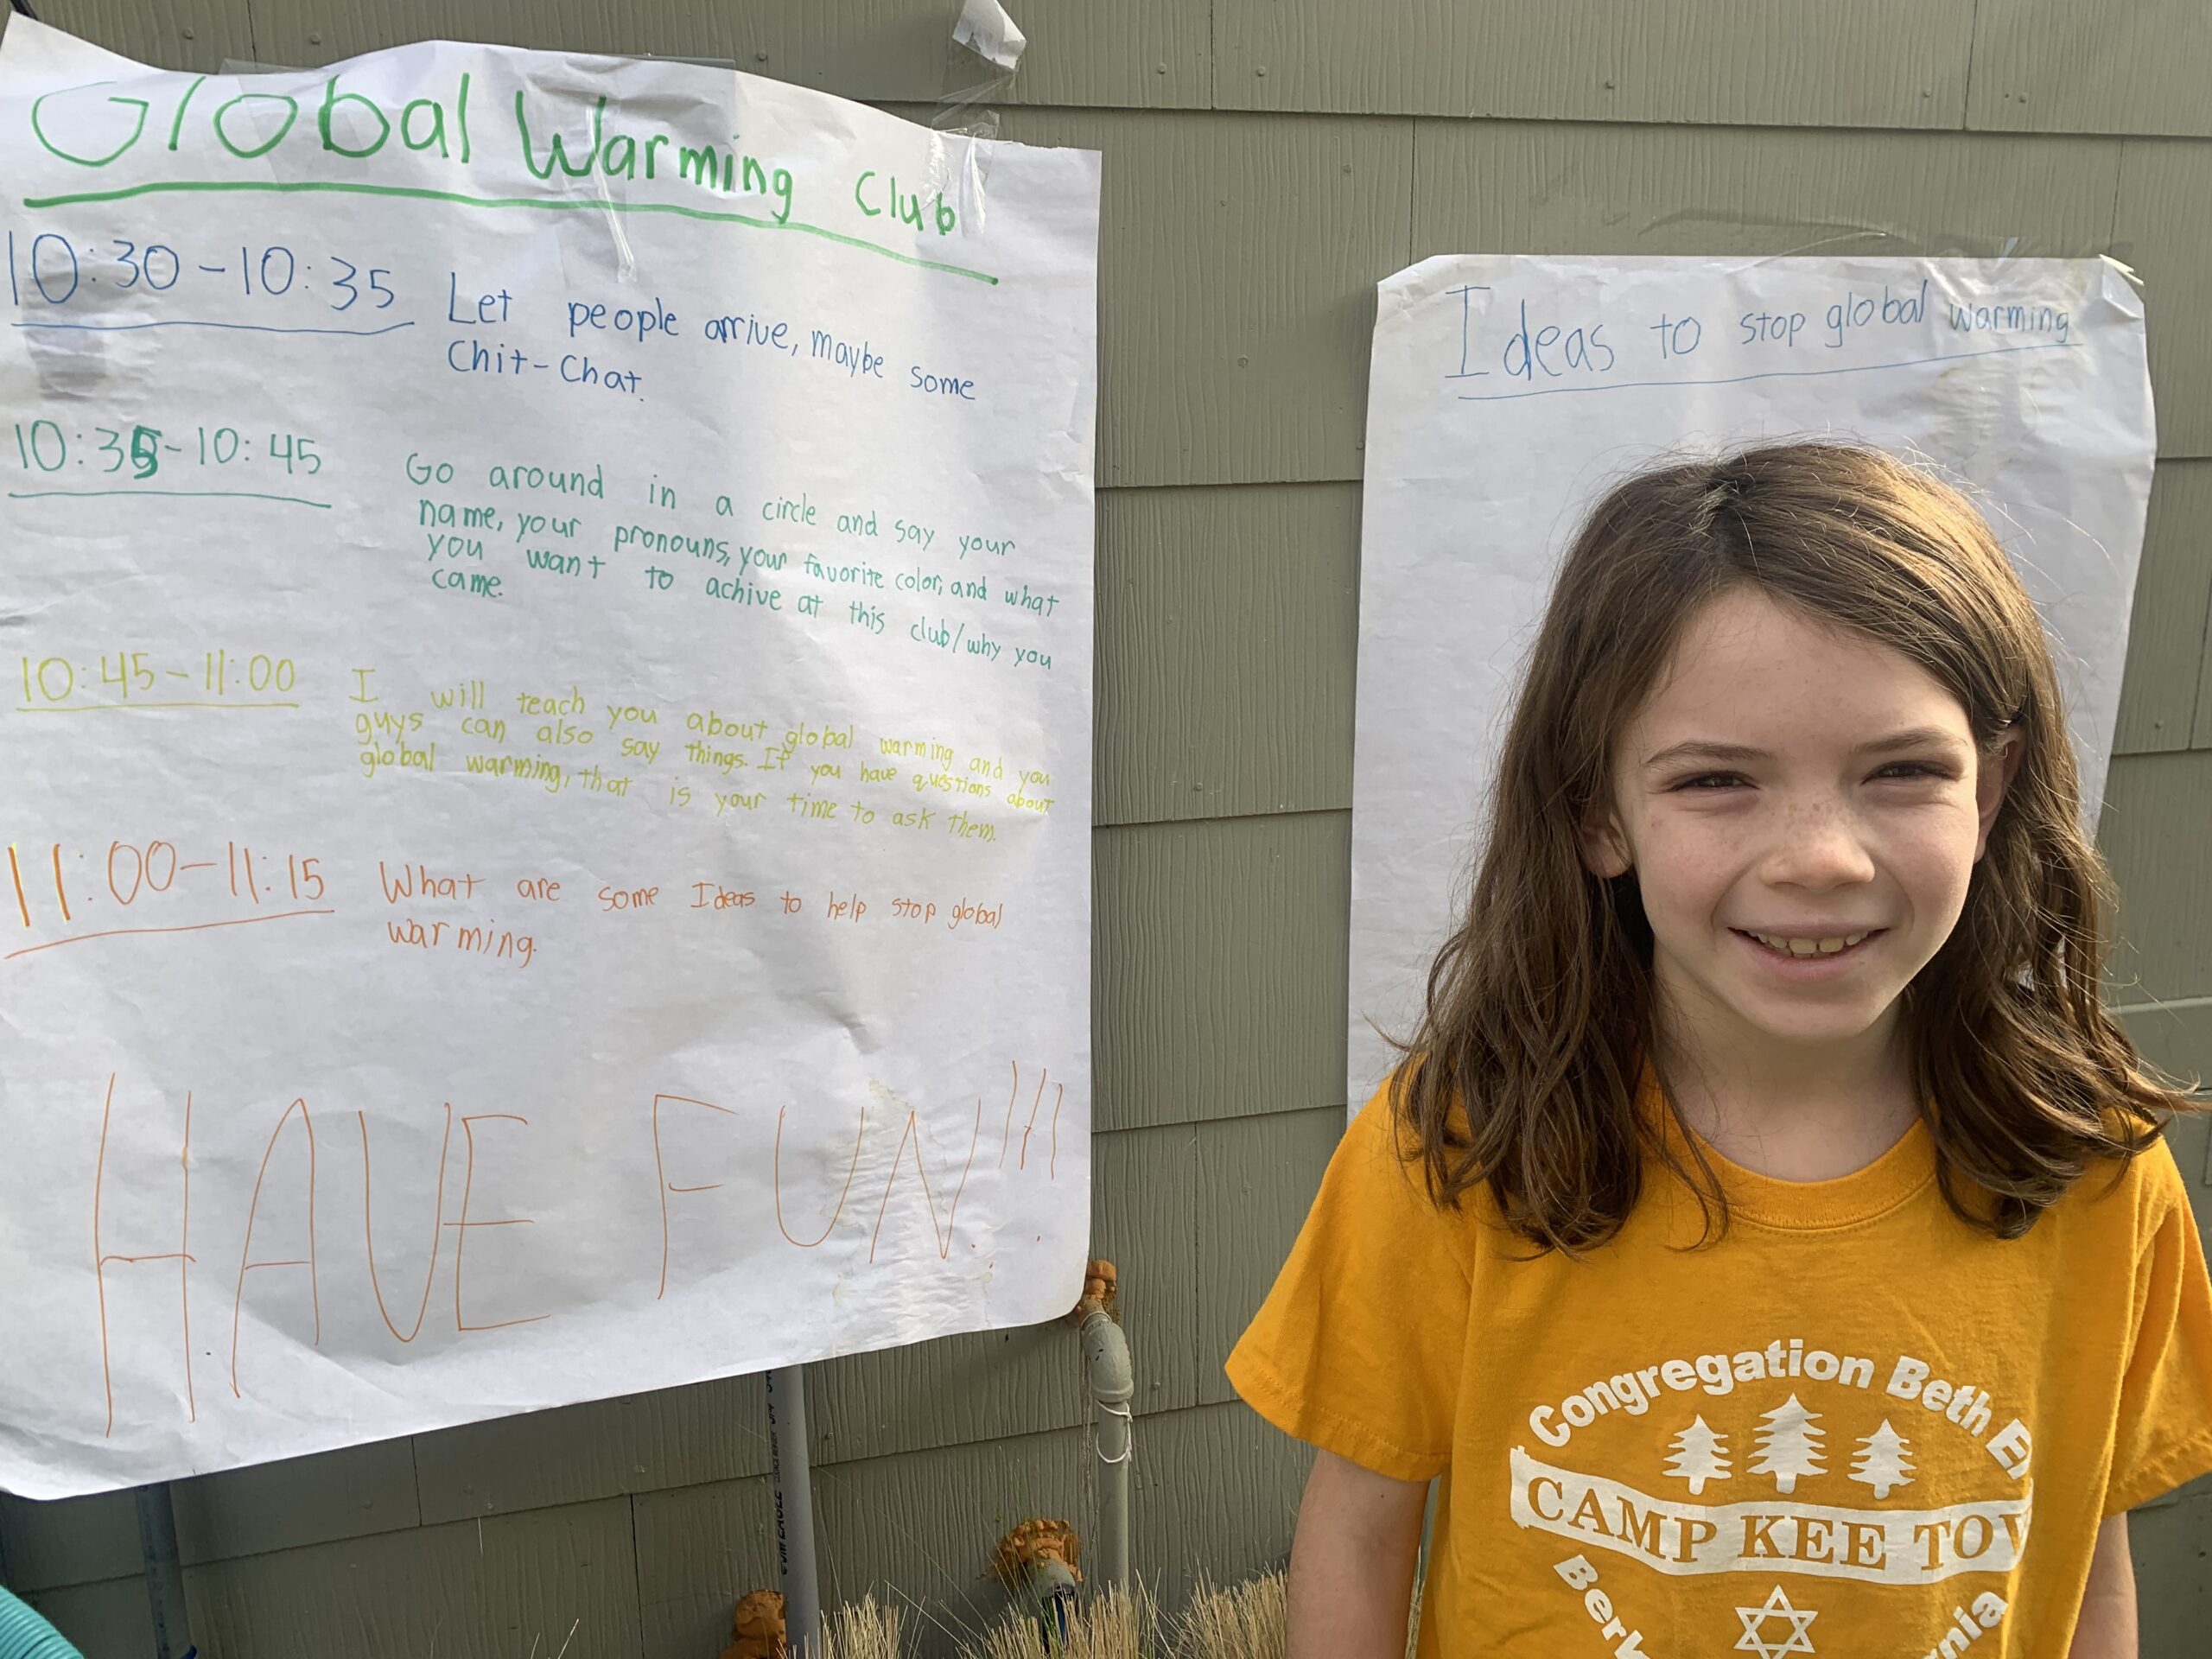 Global Warming Club
10:30-10:35 Let people arrive, maybe some
Chit-Chat.
10:35-10:45 Go around in a circle and say your
name, your pronouns, your favorite color, and what
you want to achive at this club/why you
came.
10:45-11:00 I will teach you about global warming and you
guys can also say things. If you have questions about
global warming, that is your time to ask them.
11:00-11:15 What are some Ideas to help stop global
warming.
HAVE FUN!!!
Ideas to stop global warming
Congregation Beth
CAMP KEE TOV